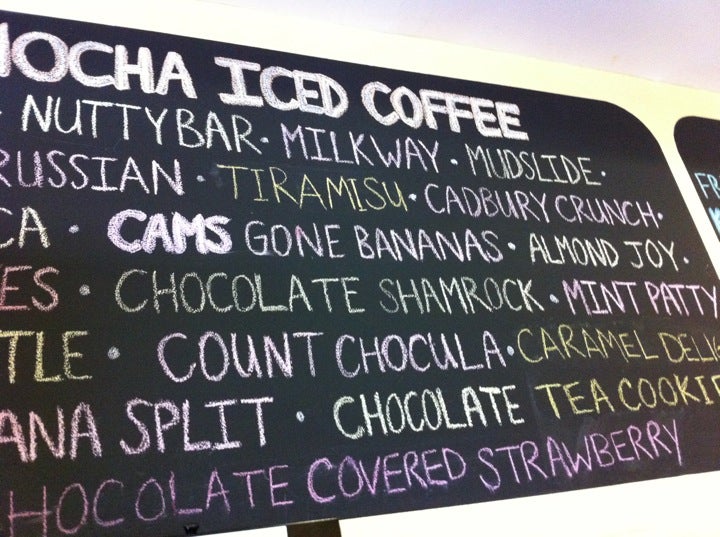 MOCHA ICED COFFEE
NUTTY BAR · MILKWAY · MUDSLIDE ·
RUSSIAN · TIRAMISU · CADBURY CRUNCH ·
CA · CAMS GONE BANANAS · ALMOND JOY ·
ES · CHOCOLATE SHAMROCK · MINT PATTY
TLE · COUNT CHOCULA · CARAMEL DELIG
ANA SPLIT · CHOCOLATE TEA COOKIE
CHOCOLATE COVERED STRAWBERRY
FR